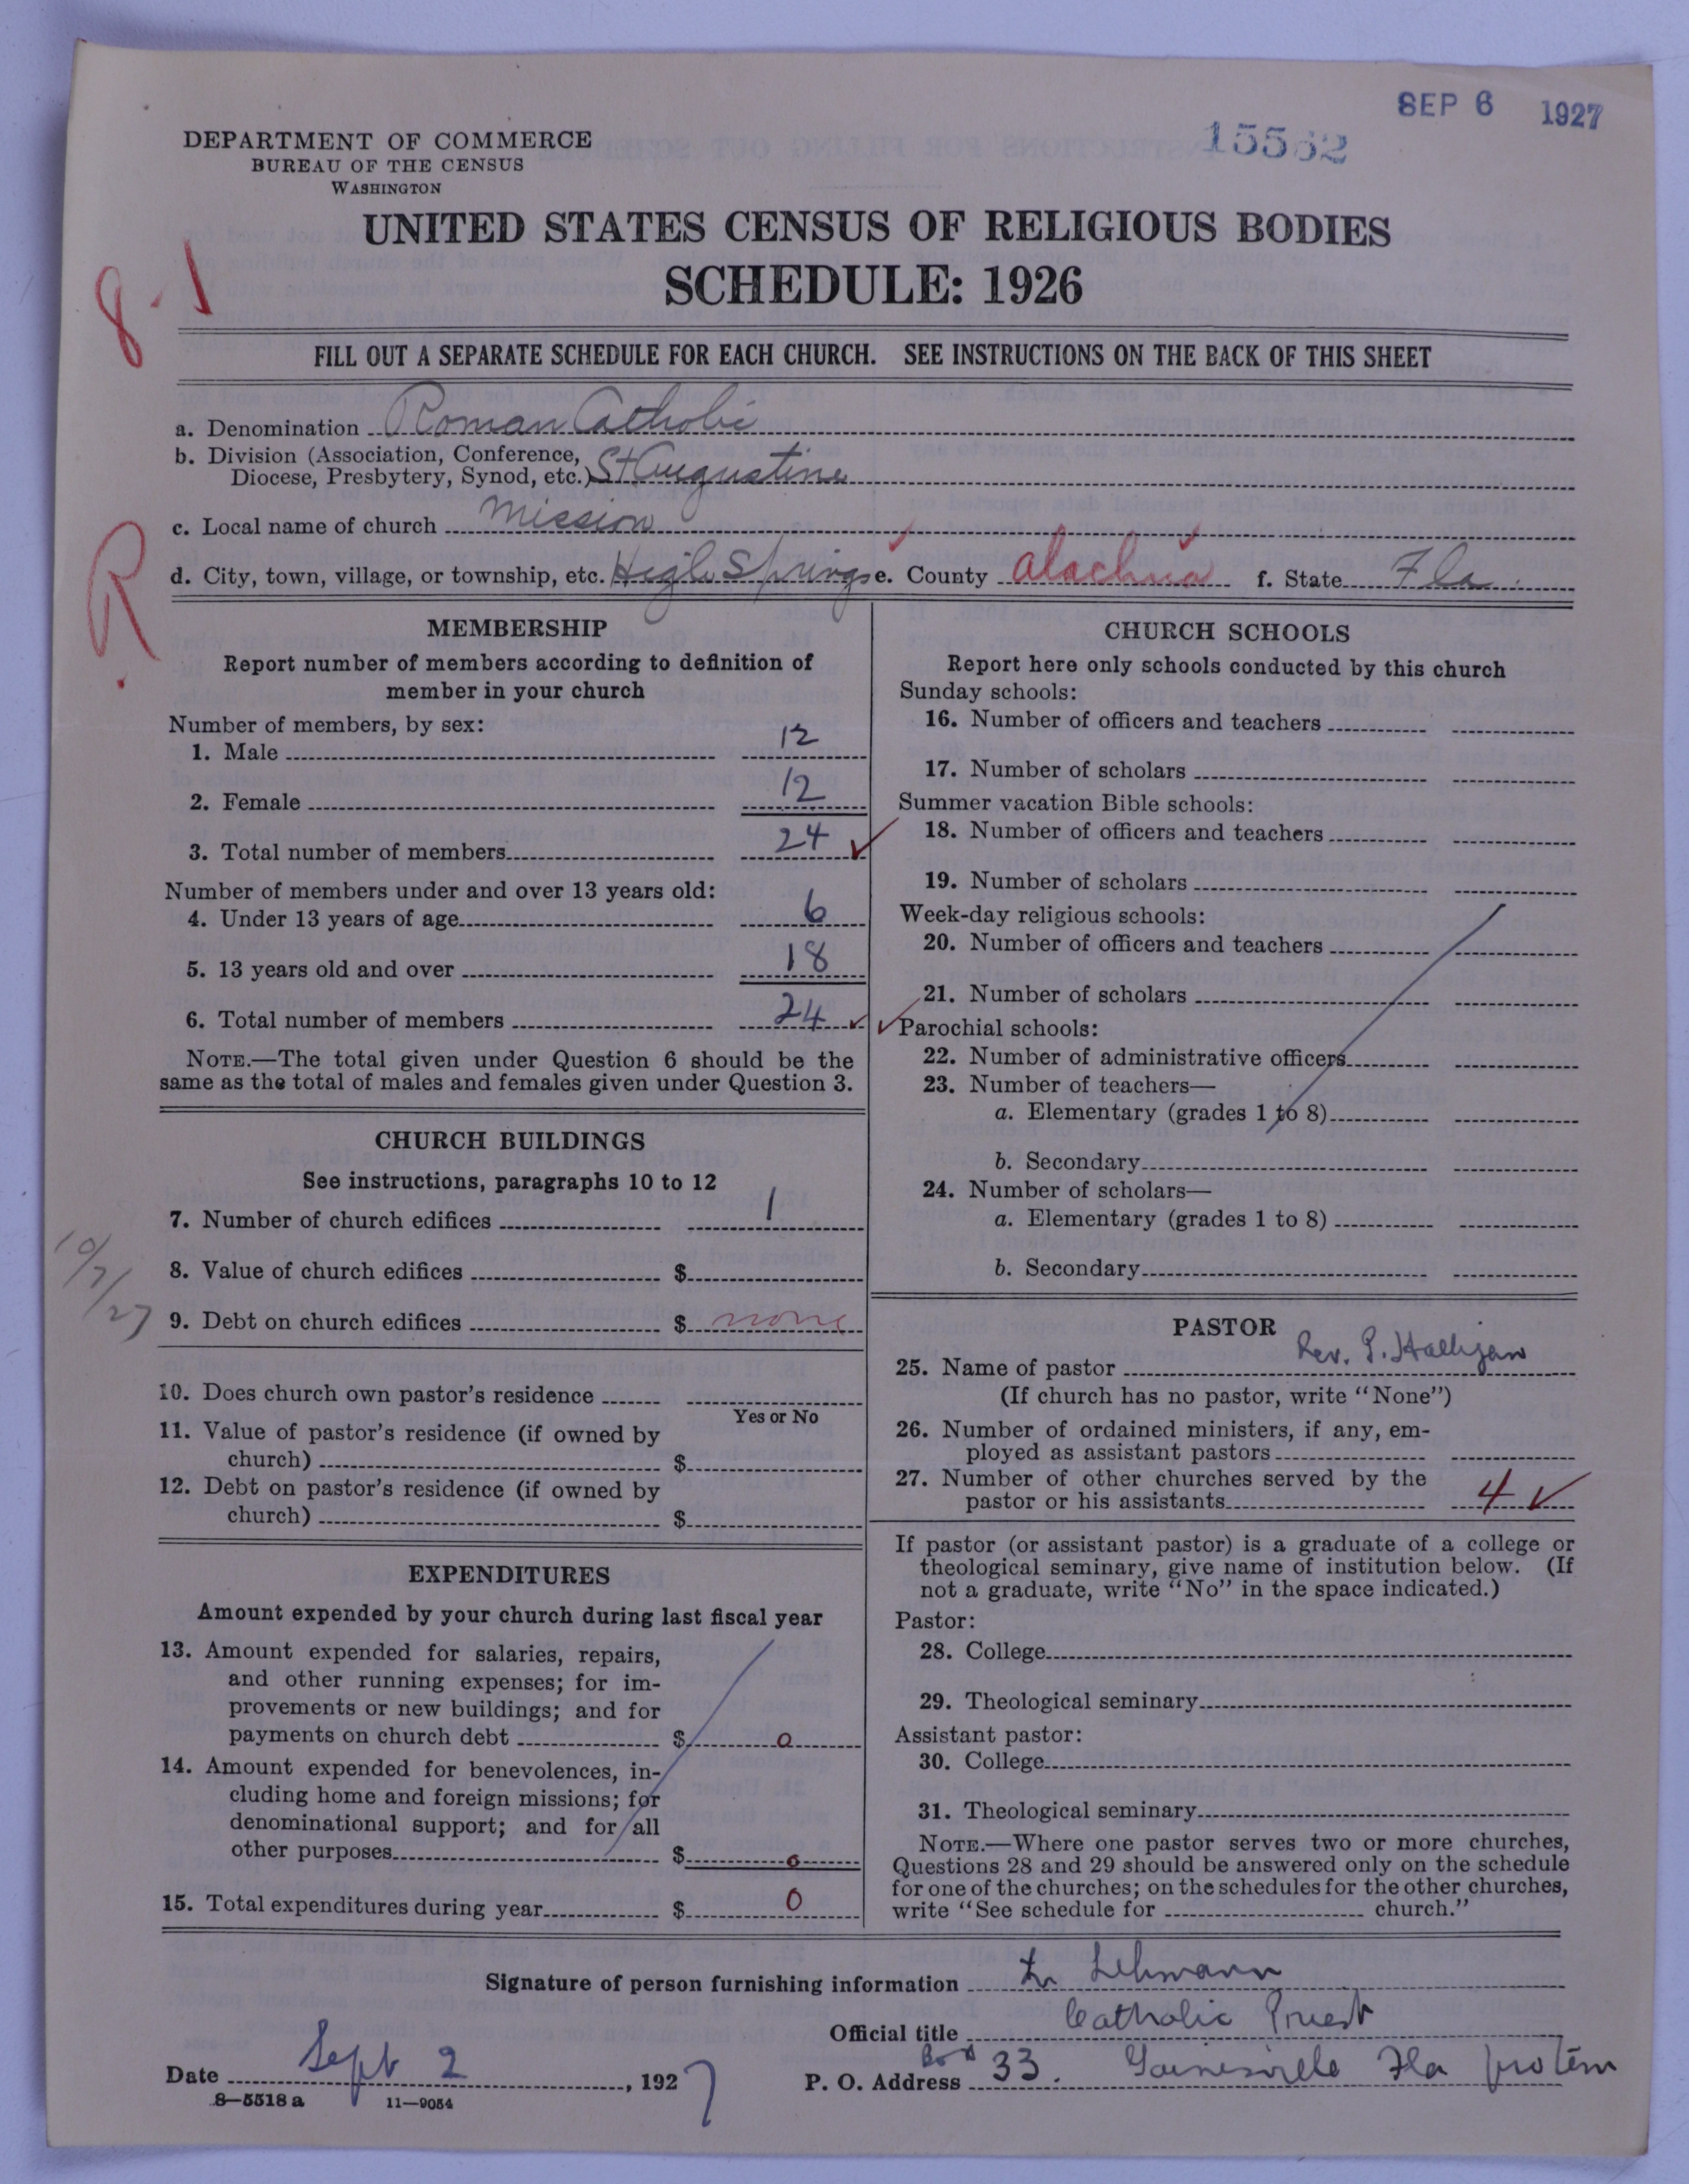 SEP 6 1927
15562
DEPARTMENT OF COMMERCE
BUREAU OF THE CENSUS
WASHINGTON
UNITED STATES CENSUS OF RELIGIOUS BODIES
SCHEDULE: 1926
8-1
FILL OUT A SEPARATE SCHEDULE FOR EACH CHURCH. SEE INSTRUCTIONS ON THE BACK OF THIS SHEET
a. Denomination Roman Catholic
b. Division (Association, Conference,
Diocese, Presbytery, Synod, etc.) St Augustine
c. Local name of church Mission
d. City, town, village, or township, etc. High Springs e. County Alachua f. State Fla.
R.
MEMBERSHIP
Report number of members according to definition of
member in your church
Number of members, by sex:
1. Male 12
2. Female 12
3. Total number of members 24 ✓
Number of members under and over 13 years old:
4. Under 13 years of age 6
5. 13 years old and over 18
6. Total number of members 24 ✓ ✓
NOTE.—The total given under Question 6 should be the
same as the total of males and females given under Question 3.
CHURCH BUILDINGS
See instructions, paragraphs 10 to 12
7. Number of church edifices 1
8. Value of church edifices $
10/7/27
9. Debt on church edifices $ none
10. Does church own pastor's residence
Yes or No
11. Value of pastor's residence (if owned by
church) $
12. Debt on pastor's residence (if owned by
church) $
EXPENDITURES
Amount expended by your church during last fiscal year
13. Amount expended for salaries, repairs,
and other running expenses; for im-
provements or new buildings; and for
payments on church debt $ 0
14. Amount expended for benevolences, in-
cluding home and foreign missions; for
denominational support; and for all
other purposes $ 0
15. Total expenditures during year $ 0
CHURCH SCHOOLS
Report here only schools conducted by this church
Sunday schools:
16. Number of officers and teachers
17. Number of scholars
Summer vacation Bible schools:
18. Number of officers and teachers
19. Number of scholars
Week-day religious schools:
20. Number of officers and teachers
21. Number of scholars
Parochial schools:
22. Number of administrative officers
23. Number of teachers—
a. Elementary (grades 1 to 8)
b. Secondary
24. Number of scholars—
a. Elementary (grades 1 to 8)
b. Secondary
PASTOR
25. Name of pastor Rev. P. Halligan
(If church has no pastor, write "None")
26. Number of ordained ministers, if any, em-
ployed as assistant pastors
27. Number of other churches served by the
pastor or his assistants 4 ✓
If pastor (or assistant pastor) is a graduate of a college or
theological seminary, give name of institution below. (If
not a graduate, write "No" in the space indicated.)
Pastor:
28. College
29. Theological seminary
Assistant pastor:
30. College
31. Theological seminary
NOTE.—Where one pastor serves two or more churches,
Questions 28 and 29 should be answered only on the schedule
for one of the churches; on the schedules for the other churches,
write "See schedule for church."
Signature of person furnishing information Lehmann
Official title Catholic Priest
Date Sept 2, 1927
P. O. Address Box 33. Gainesville Fla pro tem
8—5518 a 11—9054